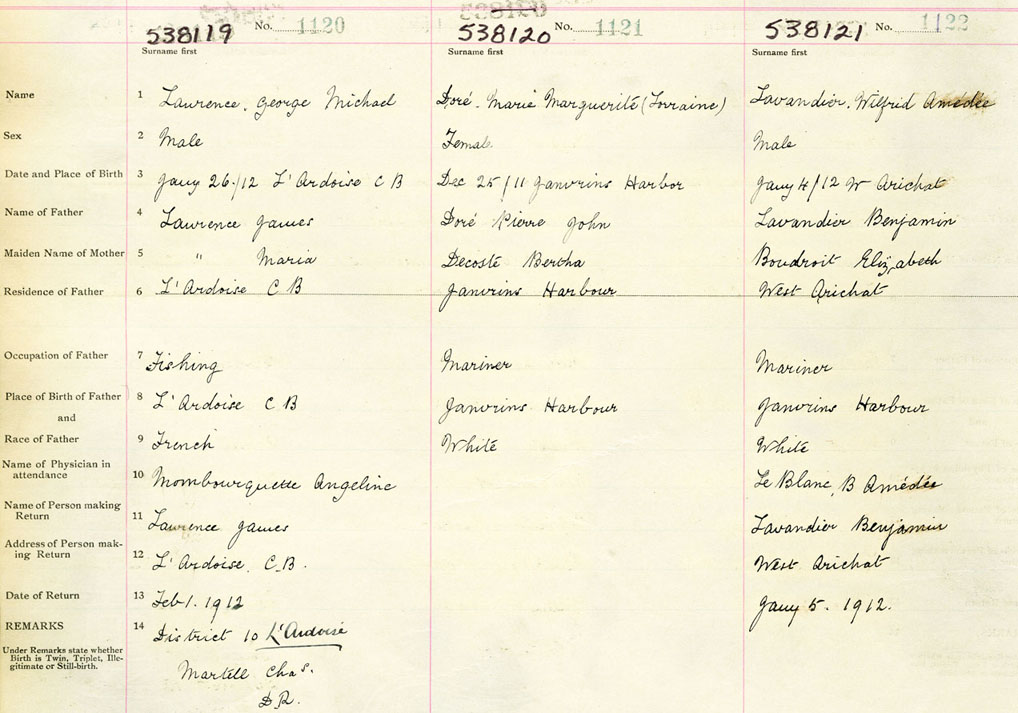 538119 No. 1120 538120 No. 1121 538121 No. 1122
Surname first Surname first Surname first
Name 1 Lawrence, George Michael Doré. Marie Marguerite (Lorraine) Lavandier. Wilfrid Amédée
Sex 2 Male Female Male
Date and Place of Birth 3 Jany 26/12 L'Ardoise C B Dec 25/11 Janvrins Harbor Jany 4/12 W Arichat
Name of Father 4 Lawrence James Doré Pierre John Lavandier Benjamin
Maiden Name of Mother 5 " Maria Decoste Bertha Boudroit Elizabeth
Residence of Father 6 L'Ardoise C B Janvrins Harbour West Arichat
Occupation of Father 7 Fishing Mariner Mariner
Place of Birth of Father 8 L'Ardoise C B Janvrins Harbour Janvrins Harbour
and
Race of Father 9 French White White
Name of Physician in
attendance 10 Mombourquette Angeline Le Blanc, B Amédée
Name of Person making
Return 11 Lawrence James Lavandier Benjamin
Address of Person mak-
ing Return 12 L'Ardoise. C.B. West Arichat
Date of Return 13 Feb 1. 1912 Jany 5. 1912.
REMARKS 14 District 10 L'Ardoise
Under Remarks state whether
Birth is Twin, Triplet, Ille-
gitimate or Still-birth.
Martell Chas.
D.R.